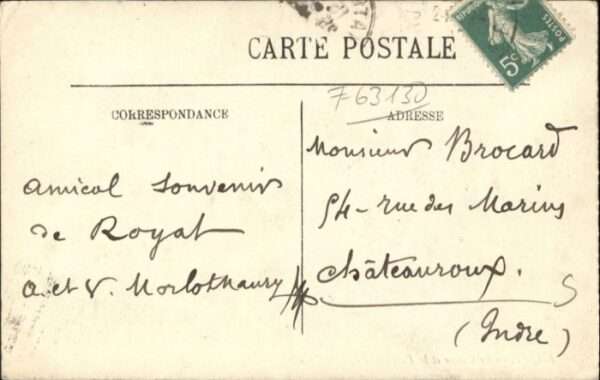 CARTE POSTALE
5c
F63130
CORRESPONDANCE
ADRESSE
Amical Souvenir
de Royat
A. et V.
Monsieur Brocard
54 - rue des Marins
Châteauroux.
(Indre)